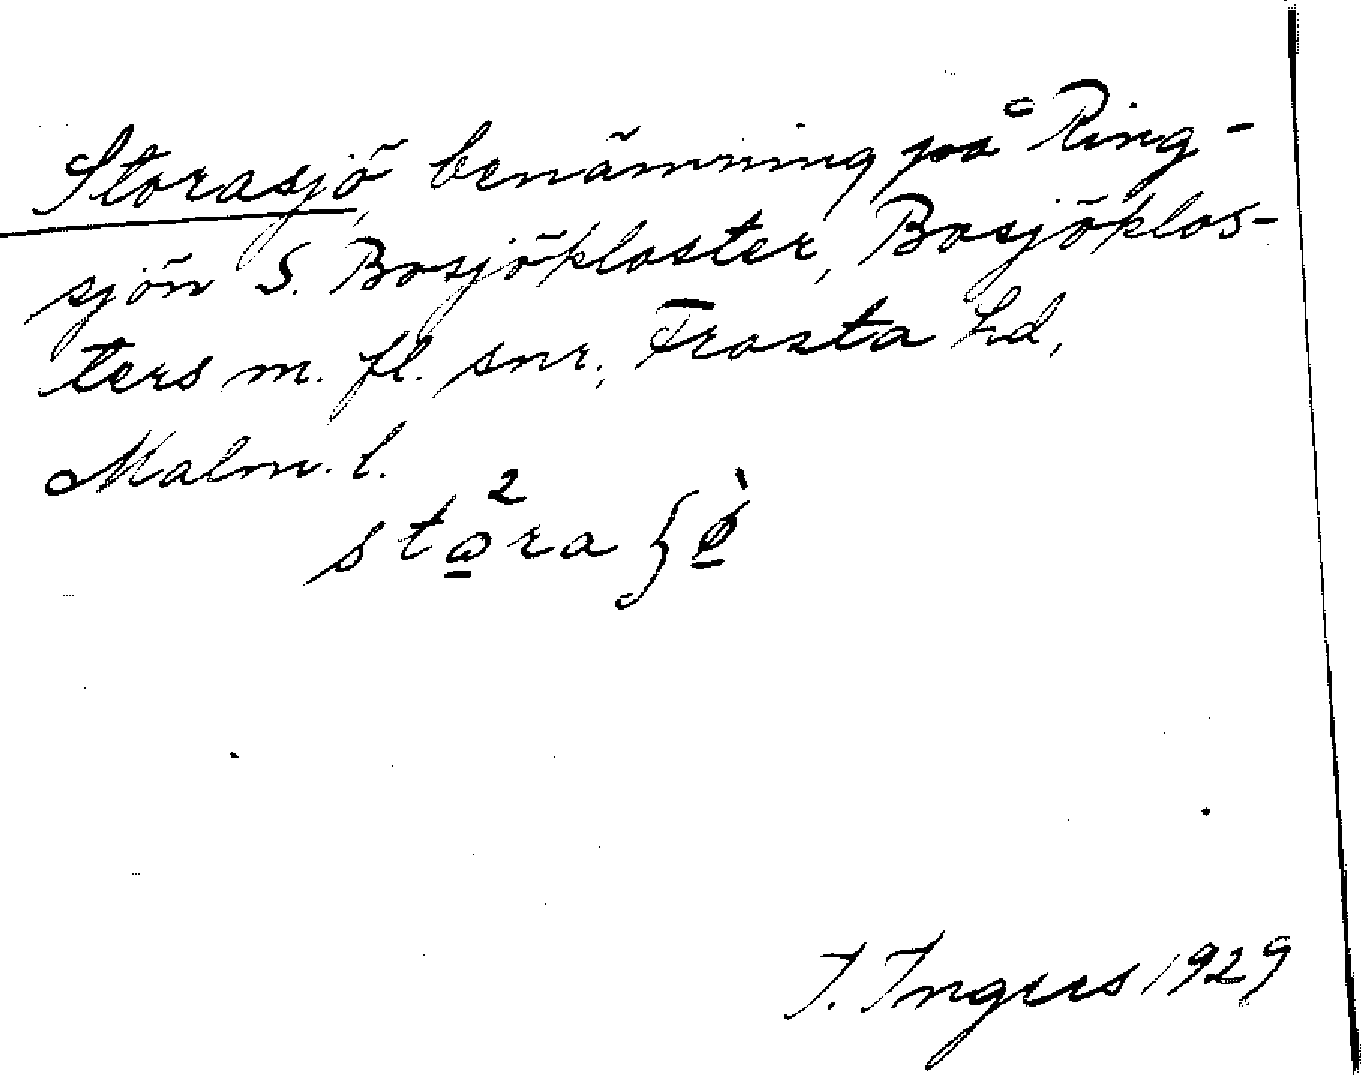 Storasjö, benämning på Ring-
sjön S. Bosjökloster, Bosjöklos-
ters m. fl. snr., Frosta hd,
Malm. l.
I. Ingers 1929